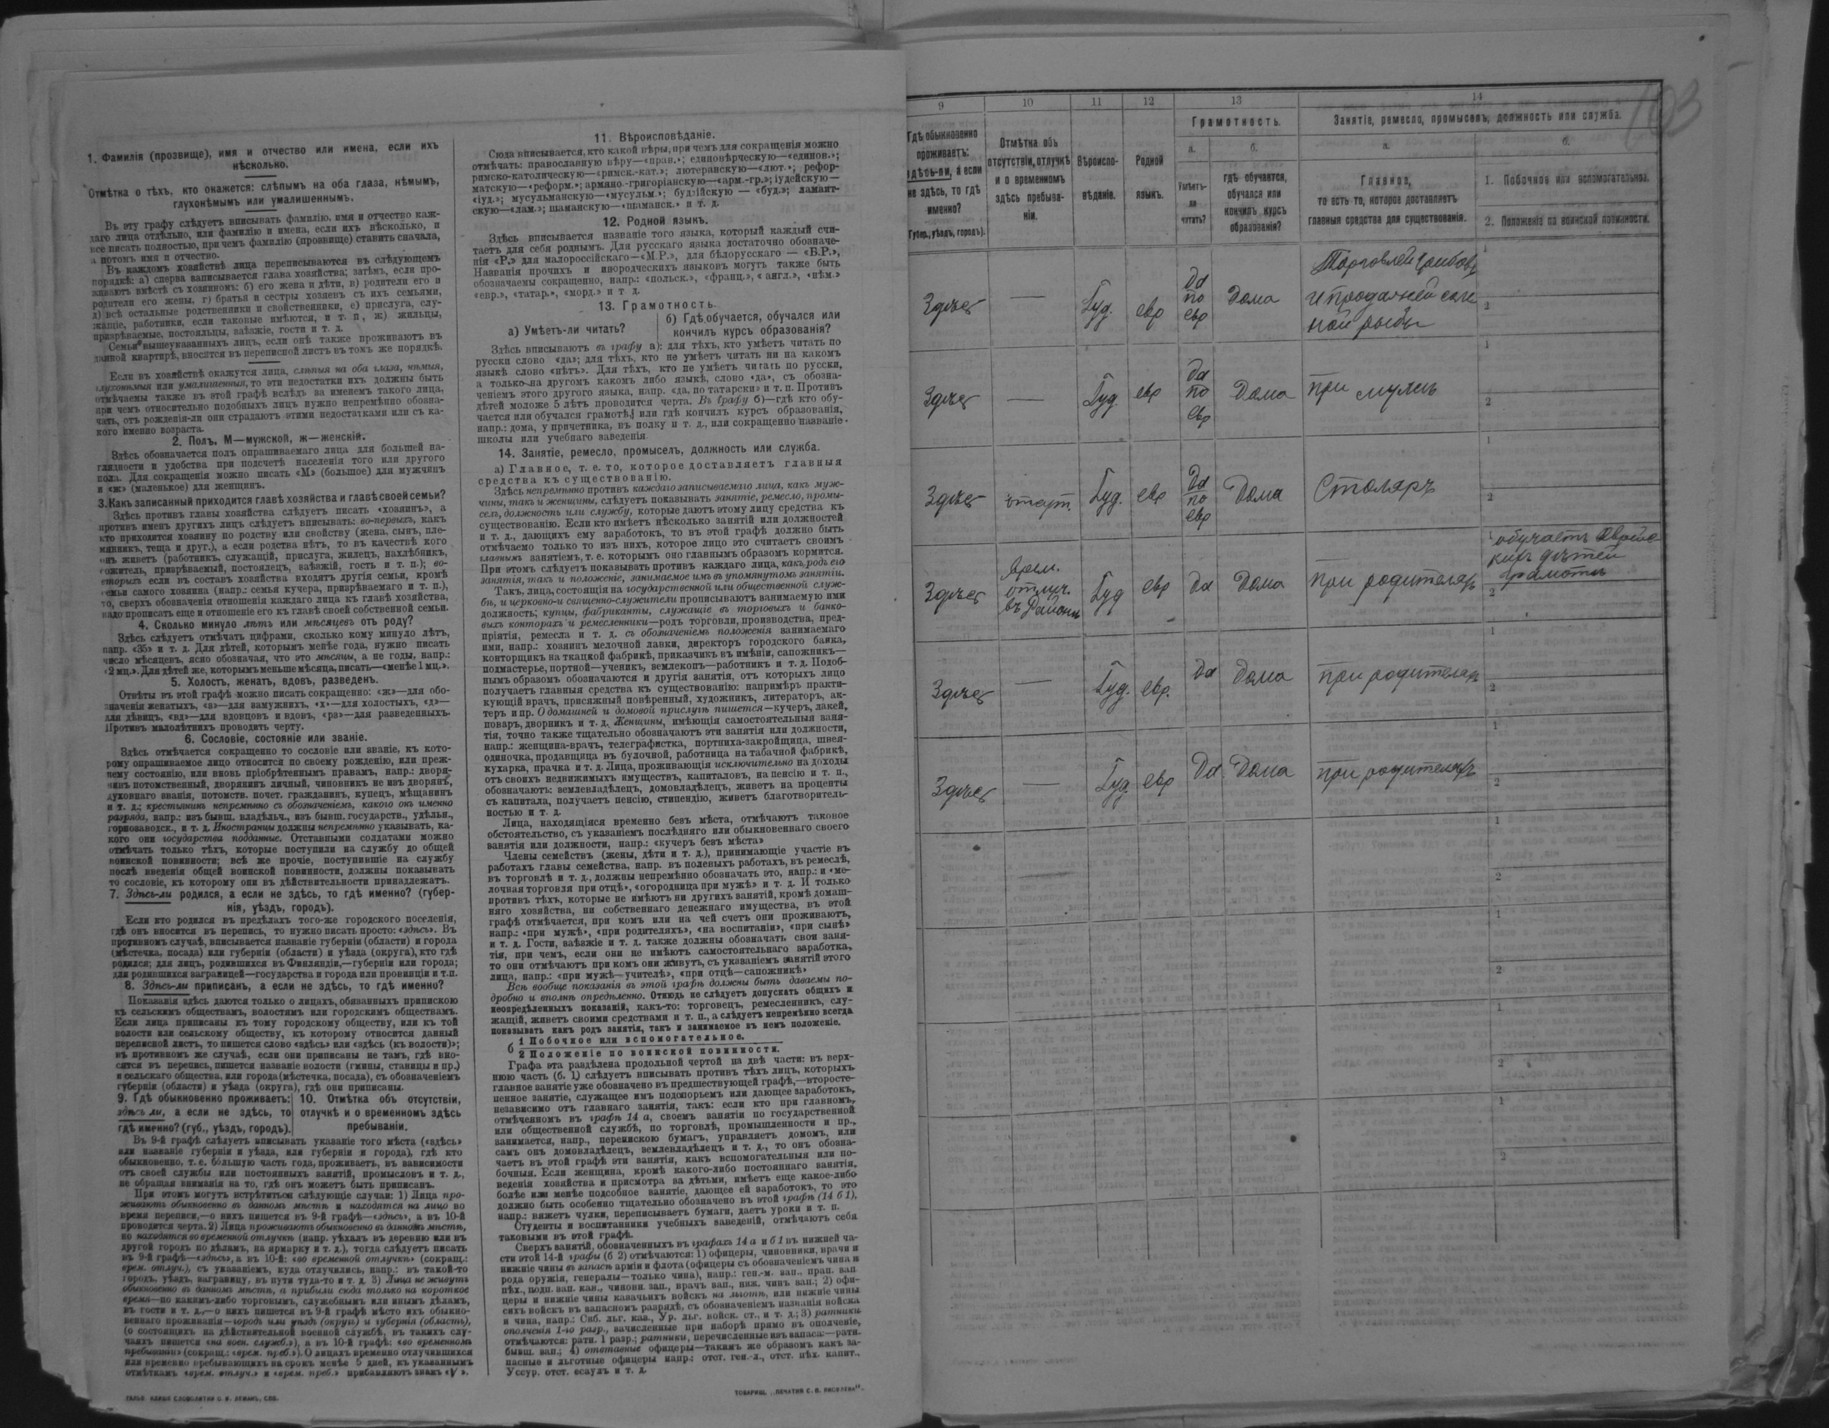 1. Фамилія (прозвище), имя и отчество или имена, если ихъ
нѣсколько.
Отмѣтка о тѣхъ, кто окажется: слѣпымъ на оба глаза, нѣмымъ,
глухонѣмымъ или умалишеннымъ.
Въ эту графу слѣдуетъ вписывать фамилію, имя и отчество каж-
даго лица отдѣльно, или фамилію и имена, если ихъ нѣсколько, и
все писать полностью, при чемъ фамилію (прозвище) ставить сначала,
а потомъ имя и отчество.
Въ каждомъ хозяйствѣ лица переписываются въ слѣдующемъ
порядкѣ: а) сперва записывается глава хозяйства; затѣмъ, если про-
живаютъ вмѣстѣ съ хозяиномъ: б) его жена и дѣти, в) родители его и
родители его жены, г) братья и сестры хозяевъ съ ихъ семьями,
д) всѣ остальные родственники и свойственники, е) прислуга, слу-
жащіе, работники, если таковые имѣются, и т. п., ж) жильцы,
призрѣваемые, постояльцы, заѣзжіе, гости и т. д.
Семьи вышеуказанныхъ лицъ, если онѣ также проживаютъ въ
данной квартирѣ, вносятся въ переписной листъ въ томъ же порядкѣ.
Если въ хозяйствѣ окажутся лица, слѣпыя на оба глаза, нѣмыя,
глухонѣмыя или умалишенныя, то эти недостатки ихъ должны быть
отмѣчаемы также въ этой графѣ вслѣдъ за именемъ такого лица,
при чемъ относительно подобныхъ лицъ нужно непремѣнно обозна-
чать, отъ рожденія-ли они страдаютъ этими недостатками или съ ка-
кого именно возраста.
2. Полъ. М—мужской, ж—женскій.
Здѣсь обозначается полъ опрашиваемаго лица для большей на-
глядности и удобства при подсчетѣ населенія того или другого
пола. Для сокращенія можно писать «М» (большое) для мужчинъ
и «ж» (маленькое) для женщинъ.
3. Какъ записанный приходится главѣ хозяйства и главѣ своей семьи?
Здѣсь противъ главы хозяйства слѣдуетъ писать «хозяинъ», а
противъ именъ другихъ лицъ слѣдуетъ вписывать: во-первыхъ, какъ
кто приходится хозяину по родству или свойству (жена, сынъ, пле-
мянникъ, теща и друг.), а если родства нѣтъ, то въ качествѣ кого
онъ живетъ (работникъ, служащій, прислуга, жилецъ, нахлѣбникъ,
сожитель, призрѣваемый, постоялецъ, заѣзжій, гость и т. п.); во-
вторыхъ если въ составъ хозяйства входятъ другія семьи, кромѣ
семьи самого хозяина (напр.: семья кучера, призрѣваемаго и т. п.),
то, сверхъ обозначенія отношенія каждаго лица къ главѣ хозяйства,
надо прописать еще и отношеніе его къ главѣ своей собственной семьи.
4. Сколько минуло лѣтъ или мѣсяцевъ отъ роду?
Здѣсь слѣдуетъ отмѣчать цифрами, сколько кому минуло лѣтъ,
напр. «35» и т. д. Для дѣтей, которымъ менѣе года, нужно писать
число мѣсяцевъ, ясно обозначая, что это мѣсяцы, а не годы, напр.:
«2 мц.». Для дѣтей же, которымъ меньше мѣсяца, писать—«менѣе 1 мц.».
5. Холостъ, женатъ, вдовъ, разведенъ.
Отвѣты въ этой графѣ можно писать сокращенно: «ж»—для обо-
значенія женатыхъ, «з»—для замужнихъ, «х»—для холостыхъ, «д»—
для дѣвицъ, «вд»—для вдовцовъ и вдовъ, «рз»—для разведенныхъ.
Противъ малолѣтнихъ проводить черту.
6. Сословіе, состояніе или званіе.
Здѣсь отмѣчается сокращенно то сословіе или званіе, къ кото-
рому опрашиваемое лицо относится по своему рожденію, или преж-
нему состоянію, или вновь пріобрѣтеннымъ правамъ, напр.: дворя-
нинъ потомственный, дворянинъ личный, чиновникъ не изъ дворянъ,
духовнаго званія, потомств. почет. гражданинъ, купецъ, мѣщанинъ
и т. д.; крестьянинъ непремѣнно съ обозначеніемъ, какого онъ именно
разряда, напр.: изъ бывш. владѣльч., изъ бывш. государств., удѣльн.,
горнозаводск., и т. д. Иностранцы должны непремѣнно указывать, ка-
кого они государства подданные. Отставными солдатами можно
отмѣчать только тѣхъ, которые поступили на службу до общей
воинской повинности; всѣ же прочіе, поступившіе на службу
послѣ введенія общей воинской повинности, должны показывать
то сословіе, къ которому они въ дѣйствительности принадлежатъ.
7. Здѣсь-ли родился, а если не здѣсь, то гдѣ именно? (губер-
нія, уѣздъ, городъ).
Если кто родился въ предѣлахъ того-же городского поселенія,
гдѣ онъ вносится въ перепись, то нужно писать просто: «здѣсь». Въ
противномъ случаѣ, вписывается названіе губерніи (области) и города
(мѣстечка, посада) или губерніи (области) и уѣзда (округа), кто гдѣ
родился; для лицъ, родившихся въ Финляндіи,—губерніи или города;
для родившихся заграницей—государства и города или провинціи и т.п.
8. Здѣсь-ли приписанъ, а если не здѣсь, то гдѣ именно?
Показанія здѣсь даются только о лицахъ, обязанныхъ припискою
къ сельскимъ обществамъ, волостямъ или городскимъ обществамъ.
Если лица приписаны къ тому городскому обществу, или къ той
волости или сельскому обществу, къ которому относится данный
переписной листъ, то пишется слово «здѣсь» или «здѣсь (къ волости)»;
въ противномъ же случаѣ, если они приписаны не тамъ, гдѣ вно-
сятся въ перепись, пишется названіе волости (гмины, станицы и пр.)
и сельскаго общества, или города (мѣстечка, посада), съ обозначеніемъ
губерніи (области) и уѣзда (округа), гдѣ они приписаны.
9. Гдѣ обыкновенно проживаетъ:
здѣсь ли, а если не здѣсь, то
гдѣ именно? (губ., уѣздъ, городъ).
10. Отмѣтка объ отсутствіи,
отлучкѣ и о временномъ здѣсь
пребываніи.
Въ 9-й графѣ слѣдуетъ вписывать указаніе того мѣста («здѣсь»
или названіе губерніи и уѣзда, или губерніи и города), гдѣ кто
обыкновенно, т. е. большую часть года, проживаетъ, въ зависимости
отъ своей службы или постоянныхъ занятій, промысловъ и т. д.,
не обращая вниманія на то, гдѣ онъ можетъ быть приписанъ.
При этомъ могутъ встрѣтиться слѣдующіе случаи: 1) Лица про-
живаютъ обыкновенно въ данномъ мѣстѣ и находятся на лицо во
время переписи,—о нихъ пишется въ 9-й графѣ—«здѣсь», а въ 10-й
проводится черта. 2) Лица проживаютъ обыкновенно въ данномъ мѣстѣ,
но находятся во временной отлучкѣ (напр. уѣхалъ въ деревню или въ
другой городъ по дѣламъ, на ярмарку и т. д.), тогда слѣдуетъ писать
въ 9-й графѣ—«здѣсь», а въ 10-й: «во временной отлучкѣ» (сокращ.:
врем. отлуч.), съ указаніемъ, куда отлучились, напр.: въ такой-то
городъ, уѣздъ, заграницу, въ пути туда-то и т. д. 3) Лица не живутъ
обыкновенно въ данномъ мѣстѣ, а прибыли сюда только на короткое
время—по какимъ-либо торговымъ, служебнымъ или инымъ дѣламъ,
въ гости и т. д.,—о нихъ пишется въ 9-й графѣ мѣсто ихъ обыкно-
веннаго проживанія—городъ или уѣздъ (округъ) и губернія (область),
(о состоящихъ на дѣйствительной военной службѣ, въ такихъ слу-
чаяхъ пишется «на воен. служб.»), а въ 10-й графѣ: «во временномъ
пребываніи» (сокращ.: «врем. преб.»). О лицахъ временно отлучившихся
или временно пребывающихъ на срокъ менѣе 5 дней, къ указаннымъ
отмѣткамъ «врем. отлуч.» и «врем. преб.» прибавляютъ знакъ «V».
11. Вѣроисповѣданіе.
Сюда вписывается, кто какой вѣры, при чемъ для сокращенія можно
отмѣчать: православную вѣру—«прав.»; единовѣрческую—«единов.»;
римско-католическую—«римск.-кат.»; лютеранскую—«лют.»; рефор-
матскую—«реформ.»; армяно-григоріанскую—«арм.-гр.»; іудейскую—
«іуд.»; мусульманскую—«мусульм.»; буддійскую — «буд.»; ламаит-
скую—«лам.»; шаманскую—«шаманск.» и т. д.
12. Родной языкъ.
Здѣсь вписывается названіе того языка, который каждый счи-
таетъ для себя роднымъ. Для русскаго языка достаточно обозначе-
нія «Р.» для малороссійскаго—«М.Р.», для бѣлорусскаго — «Б.Р.»,
Названія прочихъ и инородческихъ языковъ могутъ также быть
обозначаемы сокращенно, напр.: «польск.», «франц.», «англ.», «нѣм.»
«евр.», «татар.», «морд.» и т. д.
13. Грамотность.
а) Умѣетъ-ли читать?
б) Гдѣ обучается, обучался или
кончилъ курсъ образованія?
Здѣсь вписываютъ въ графу а): для тѣхъ, кто умѣетъ читать по
русски слово «да»; для тѣхъ, кто не умѣетъ читать ни на какомъ
языкѣ слово «нѣтъ». Для тѣхъ, кто не умѣетъ читать по русски,
а только-на другомъ какомъ либо языкѣ, слово «да», съ обозна-
ченіемъ этого другого языка, напр. «да, по татарски» и т. п. Противъ
дѣтей моложе 5 лѣтъ проводится черта. Въ графу б)—гдѣ кто обу-
чается или обучался грамотѣ, или гдѣ кончилъ курсъ образованія,
напр.: дома, у причетника, въ полку и т. д., или сокращенно названіе
школы или учебнаго заведенія.
14. Занятіе, ремесло, промыселъ, должность или служба.
а) Главное, т. е. то, которое доставляетъ главныя
средства къ существованію.
Здѣсь непремѣнно противъ каждаго записываемаго лица, какъ муж-
чины, такъ и женщины, слѣдуетъ показывать занятіе, ремесло, промы-
селъ, должность или службу, которые даютъ этому лицу средства къ
существованію. Если кто имѣетъ нѣсколько занятій или должностей
и т. д., дающихъ ему заработокъ, то въ этой графѣ должно быть
отмѣчаемо только то изъ нихъ, которое лицо это считаетъ своимъ
главнымъ занятіемъ, т. е. которымъ оно главнымъ образомъ кормится.
При этомъ слѣдуетъ показывать противъ каждаго лица, какъ родъ его
занятія, такъ и положеніе, занимаемое имъ въ упомянутомъ занятіи.
Такъ, лица, состоящія на государственной или общественной служ-
бѣ, и церковно-и священно-служители прописываютъ занимаемую ими
должность; купцы, фабриканты, служащіе въ торговыхъ и банко-
выхъ конторахъ и ремесленники—родъ торговли, производства, пред-
пріятія, ремесла и т. д. съ обозначеніемъ положенія занимаемаго
ими, напр.: хозяинъ мелочной лавки, директоръ городского банка,
конторщикъ на ткацкой фабрикѣ, приказчикъ въ имѣніи, сапожникъ—
подмастерье, портной—ученикъ, землекопъ—работникъ и т. д. Подоб-
нымъ образомъ обозначаются и другія занятія, отъ которыхъ лицо
получаетъ главныя средства къ существованію: напримѣръ практи-
кующій врачъ, присяжный повѣренный, художникъ, литераторъ, ак-
теръ и пр. О домашней и домовой прислугѣ пишется—кучеръ, лакей,
поваръ, дворникъ и т. д. Женщины, имѣющія самостоятельныя заня-
тія, точно также тщательно обозначаютъ эти занятія или должности,
напр.: женщина-врачъ, телеграфистка, портниха-закройщица, швея-
одиночка, продавщица въ булочной, работница на табачной фабрикѣ,
кухарка, прачка и т. д. Лица, проживающія исключительно на доходы
отъ своихъ недвижимыхъ имуществъ, капиталовъ, на пенсію и т. п.,
обозначаютъ: землевладѣлецъ, домовладѣлецъ, живетъ на проценты
съ капитала, получаетъ пенсію, стипендію, живетъ благотворитель-
ностью и т. д.
Лица, находящіяся временно безъ мѣста, отмѣчаютъ таковое
обстоятельство, съ указаніемъ послѣдняго или обыкновеннаго своего
занятія или должности, напр.: «кучеръ безъ мѣста»
Члены семействъ (жены, дѣти и т. д.), принимающіе участіе въ
работахъ главы семейства, напр. въ полевыхъ работахъ, въ ремеслѣ,
въ торговлѣ и т. д., должны непремѣнно обозначать это, напр.: и «ме-
лочная торговля при отцѣ», «огородница при мужѣ» и т. д. И только
противъ тѣхъ, которые не имѣютъ ни другихъ занятій, кромѣ домаш-
няго хозяйства, ни собственнаго денежнаго имущества, въ этой
графѣ отмѣчается, при комъ или на чей счетъ они проживаютъ,
напр.: «при мужѣ», «при родителяхъ», «на воспитаніи», «при сынѣ»
и т. д. Гости, заѣзжіе и т. д. также должны обозначать свои заня-
тія, при чемъ, если они не имѣютъ самостоятельнаго заработка,
то они отмѣчаютъ при комъ они живутъ, съ указаніемъ занятій этого
лица, напр.: «при мужѣ—учителѣ», «при отцѣ—сапожникѣ»
Всѣ вообще показанія въ этой графѣ должны быть даваемы по-
дробно и вполнѣ опредѣленно. Отнюдь не слѣдуетъ допускать общихъ и
неопредѣленныхъ показаній, какъ-то: торговецъ, ремесленникъ, слу-
жащій, живетъ своими средствами и т. п., а слѣдуетъ непремѣнно всегда
показывать какъ родъ занятія, такъ и занимаемое въ немъ положеніе.
б 1 Побочное или вспомогательное.
2 Положеніе по воинской повинности.
Графа эта раздѣлена продольной чертой на двѣ части: въ верх-
нюю часть (б. 1) слѣдуетъ вписывать противъ тѣхъ лицъ, которыхъ
главное занятіе уже обозначено въ предшествующей графѣ,—второсте-
пенное занятіе, служащее имъ подспорьемъ или дающее заработокъ,
независимо отъ главнаго занятія, такъ: если кто при главномъ,
отмѣченномъ въ графѣ 14 а, своемъ занятіи по государственной
или общественной службѣ, по торговлѣ, промышленности и пр.,
занимается, напр., перепискою бумагъ, управляетъ домомъ, или
самъ онъ домовладѣлецъ, землевладѣлецъ и т. д., то онъ обозна-
чаетъ въ этой графѣ эти занятія, какъ вспомогательныя или по-
бочныя. Если женщина, кромѣ какого-либо постояннаго занятія,
веденія хозяйства и присмотра за дѣтьми, имѣетъ еще какое-либо
болѣе или менѣе подсобное занятіе, дающее ей заработокъ, то это
должно быть особенно тщательно обозначено въ этой графѣ (14 б 1),
напр.: вяжетъ чулки, переписываетъ бумаги, даетъ уроки и т. п.
Студенты и воспитанники учебныхъ заведеній, отмѣчаютъ себя
таковыми въ этой графѣ.
Сверхъ занятій, обозначенныхъ въ графахъ 14 а и б 1 въ нижней ча-
сти этой 14-й графы (б 2) отмѣчаются: 1) офицеры, чиновники, врачи и
нижніе чины въ запасѣ арміи и флота (офицеры съ обозначеніемъ чина и
рода оружія, генералы—только чина), напр.: ген.-м. зап., прап. зап.
пѣх., подп. зап. кав., чиновн. зап., врачъ зап., ниж. чинъ зап.; 2) офи-
церы и нижніе чины казачьихъ войскъ на льготѣ, или нижніе чины
сихъ войскъ въ запасномъ разрядѣ, съ обозначеніемъ названія войска
и чина, напр.: Сиб. льг. каз., Ур. льг. войск. ст., и т. д.; 3) ратники
ополченія 1-го разр., зачисленные при наборѣ прямо въ ополченіе,
отмѣчаются: ратн. 1 разр.; ратники, перечисленные изъ запаса:—ратн.
бывш. зап.; 4) отставные офицеры—такимъ же образомъ какъ за-
пасные и льготные офицеры напр.: отст. ген.-л., отст. пѣх. капит.,
Уссур. отст. есаулъ и т. д.
103
9 10 11 12 13 14
Гдѣ обыкновенно
проживаетъ:
здѣсь-ли, а если
не здѣсь, то гдѣ
именно?
(Губерн., уѣздъ, городъ).
Отмѣтка объ
отсутствіи, отлучкѣ
и о временномъ
здѣсь пребыва-
ніи.
Вѣроиспо-
вѣданіе.
Родной
языкъ.
Грамотность.
а.
Умѣетъ-
ли
читать?
б.
гдѣ обучается,
обучался или
кончилъ курсъ
образованія?
Занятіе, ремесло, промыселъ, должность или служба.
а.
Главное,
то есть то, которое доставляетъ
главныя средства для существованія.
б.
1. Побочное или вспомогательное.
2. Положеніе по воинской повинности.
Здѣсь — Іуд. евр да по евр дома
Торговля
и продажей соле
ной рыбы
Здѣсь — Іуд. евр да по евр дома при мужѣ
Здѣсь Іуд. евр да по евр дома Столяръ
Здѣсь Врем. отлуч. Іуд евр да дома при родителяхъ
обучаетъ еврейс
кихъ дѣтей
грамотѣ
Здѣсь — Іуд. евр. да дома при родителяхъ
Здѣсь — Іуд. евр да дома при родителяхъ